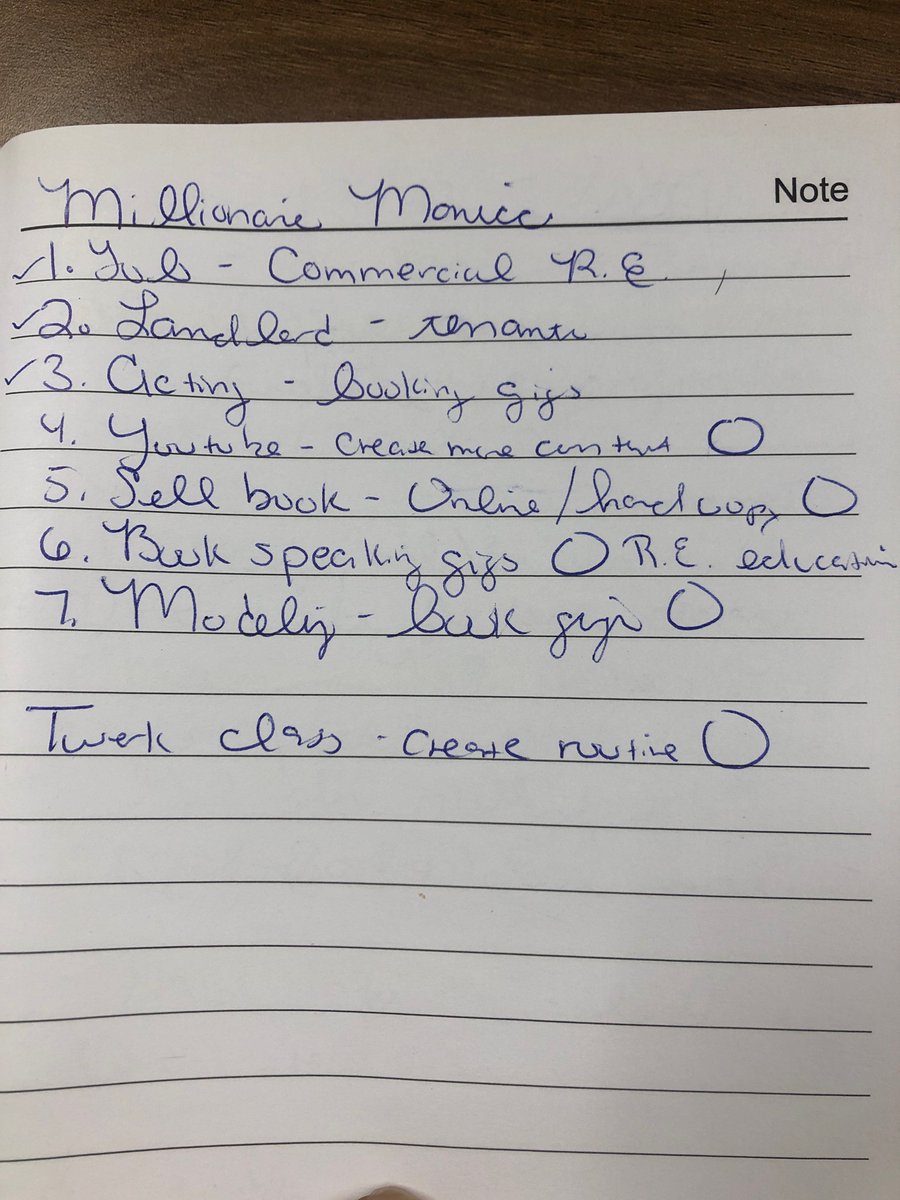 Note
Millionaire Monica
✓1. Job - Commercial R.E.
✓2. Landlord - tenants
✓3. Acting - booking gigs
4. Youtube - create more content O
5. Sell book - Online/hard copy O
6. Book speaking gigs O R.E. education
7. Modeling - book gigs O
Twerk class - create routine O